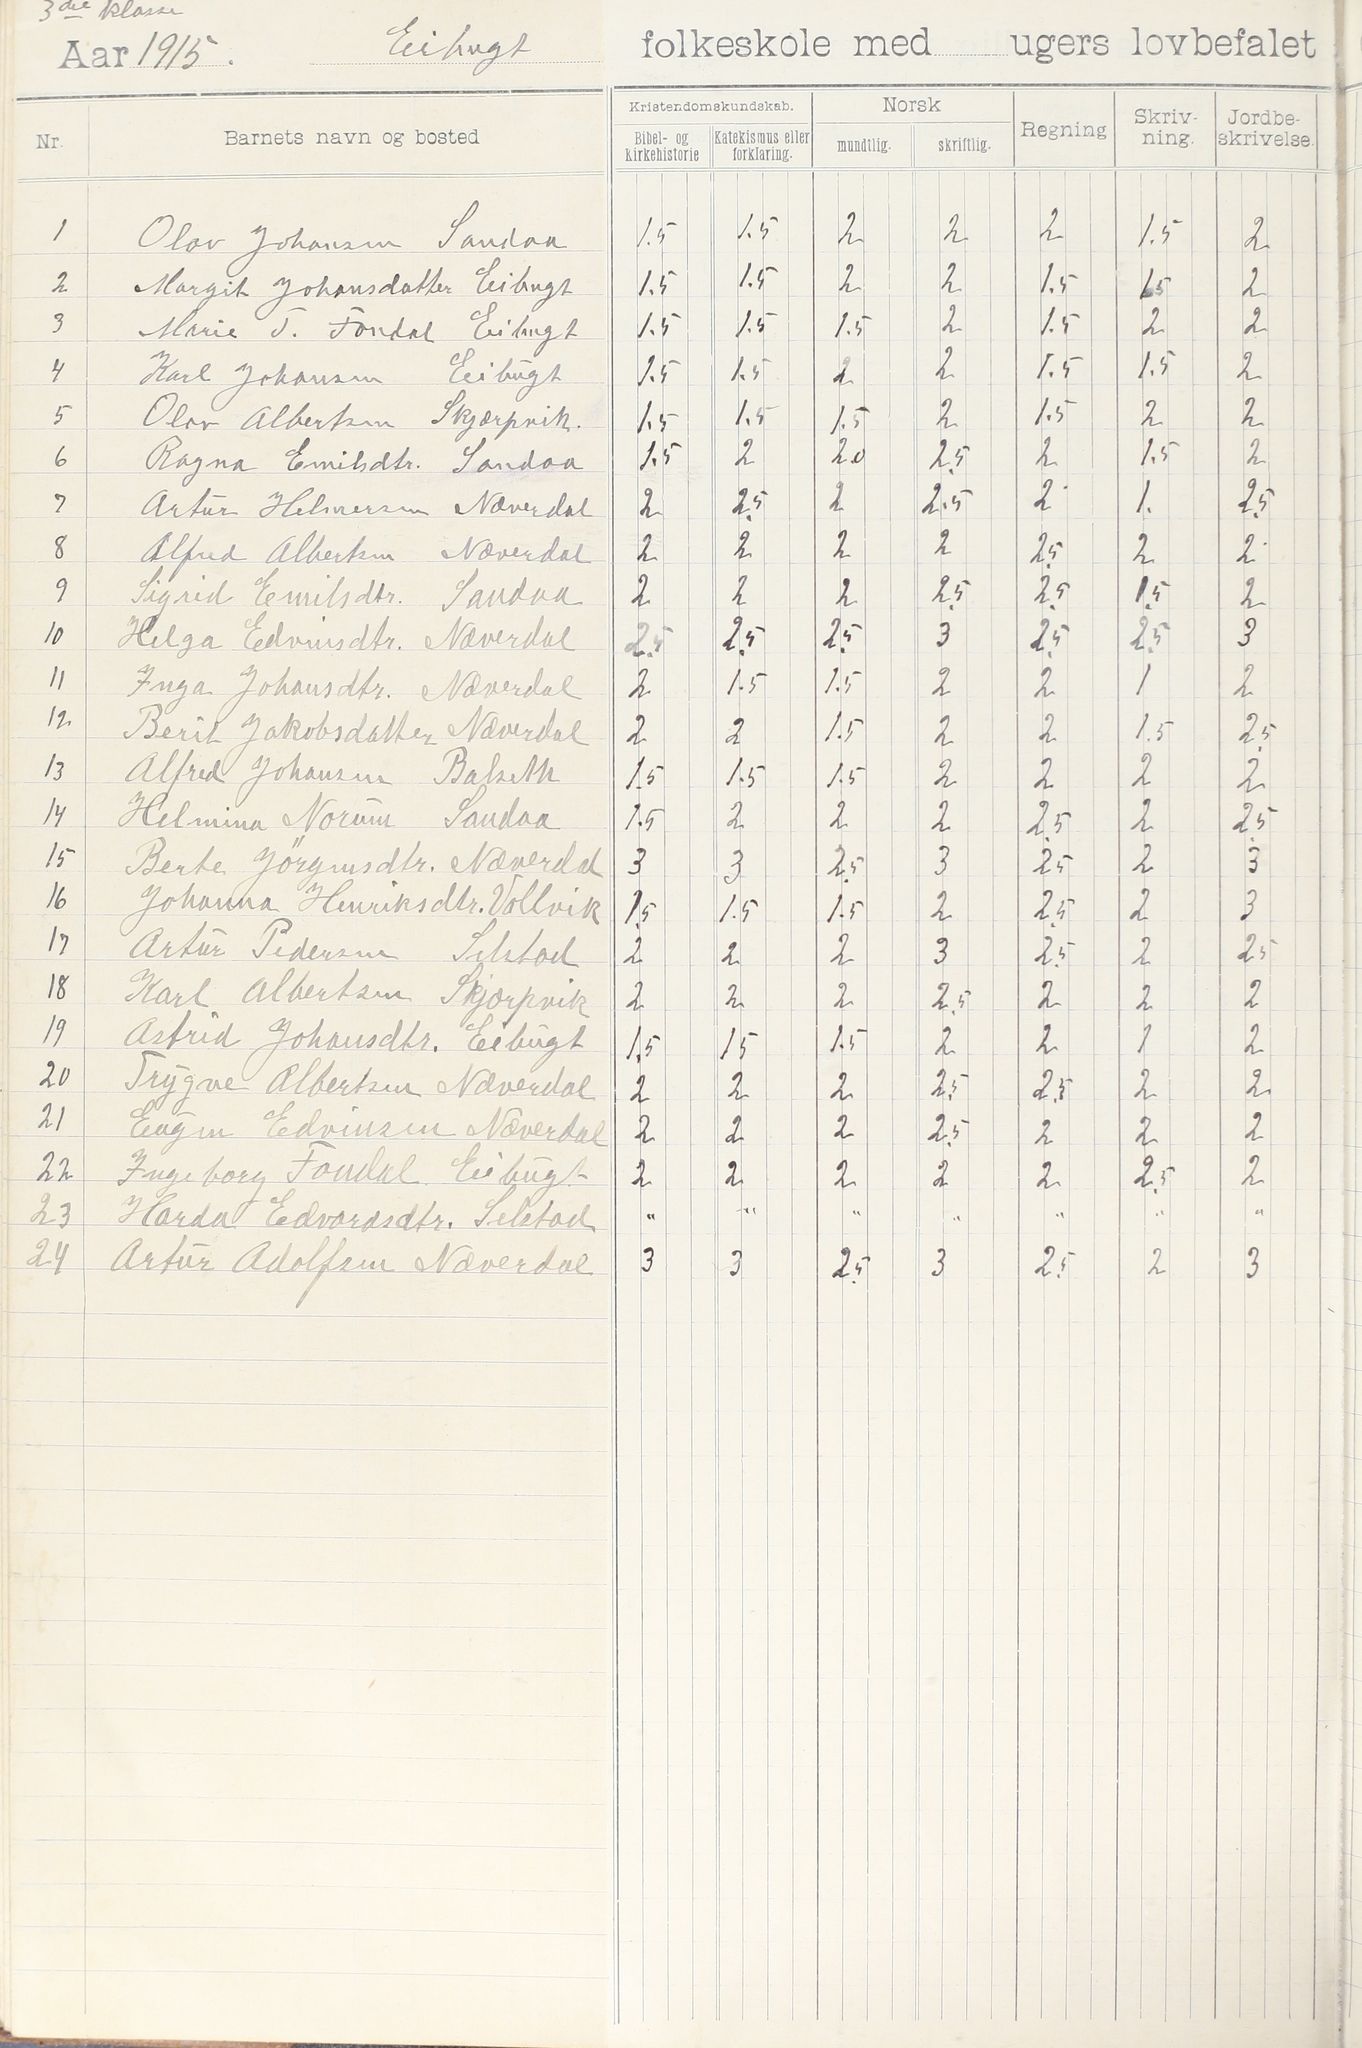 3die klasse
Aar 1915. Eibugt folkeskole med ugers lovbefalet
Nr. Barnets navn og bosted Kristendomskundskab. Bibel- og kirkehistorie Katekismus eller forklaring. Norsk mundtlig. skriftlig. Regning Skriv-ning. Jordbe-skrivelse.
1 Olav Johansen Sandaa 1.5 1.5 2 2 2 1.5 2
2 Margit Johansdatter Eibugt 1.5 1.5 2 2 1.5 1.5 2
3 Marie T. Fondal Eibugt 1.5 1.5 1.5 2 1.5 2 2
4 Karl Johansen Eibugt 1.5 1.5 2 2 1.5 1.5 2
5 Olav Albertsen Skjærpvik. 1.5 1.5 1.5 2 1.5 2 2
6 Ragna Emilsdtr. Sandaa 1.5 2 2.0 2.5 2 1.5 2
7 Artur Helmersen Næverdal 2 2.5 2 2.5 2 1. 2.5
8 Alfred Albertsen Næverdal 2 2 2 2 2.5 2 2
9 Sigrid Emilsdtr. Sandaa 2 2 2 2.5 2.5 1.5 2
10 Helga Edvinsdtr. Næverdal 2.5 2.5 2.5 3 2.5 2.5 3
11 Inga Johansdtr. Næverdal 2 1.5 1.5 2 2 1 2
12 Berit Jakobsdatter Næverdal 2 2 1.5 2 2 1.5 2.5
13 Alfred Johansen Balseth 1.5 1.5 1.5 2 2 2 2
14 Helmina Norum Sandaa 1.5 2 2 2 2.5 2 2.5
15 Berte Jörgensdtr. Næverdal 3 3 2.5 3 2.5 2 3
16 Johanna Henriksdtr. Vollvik 1.5 1.5 1.5 2 2.5 2 3
17 Artur Pedersen Selstad 2 2 2 3 2.5 2 2.5
18 Karl Albertsen Skjærpvik 2 2 2 2.5 2 2 2
19 Astrid Johansdtr. Eibugt 1.5 1.5 1.5 2 2 1 2
20 Trygve Albertsen Næverdal 2 2 2 2.5 2.5 2 2
21 Eugen Edvinsen Næverdal 2 2 2 2.5 2 2 2
22 Ingeborg Fondal Eibugt 2 2 2 2 2 2.5 2
23 Harda Edvardsdtr. Selstad " " " " " " "
24 Artur Adolfsen Næverdal 3 3 2.5 3 2.5 2 3